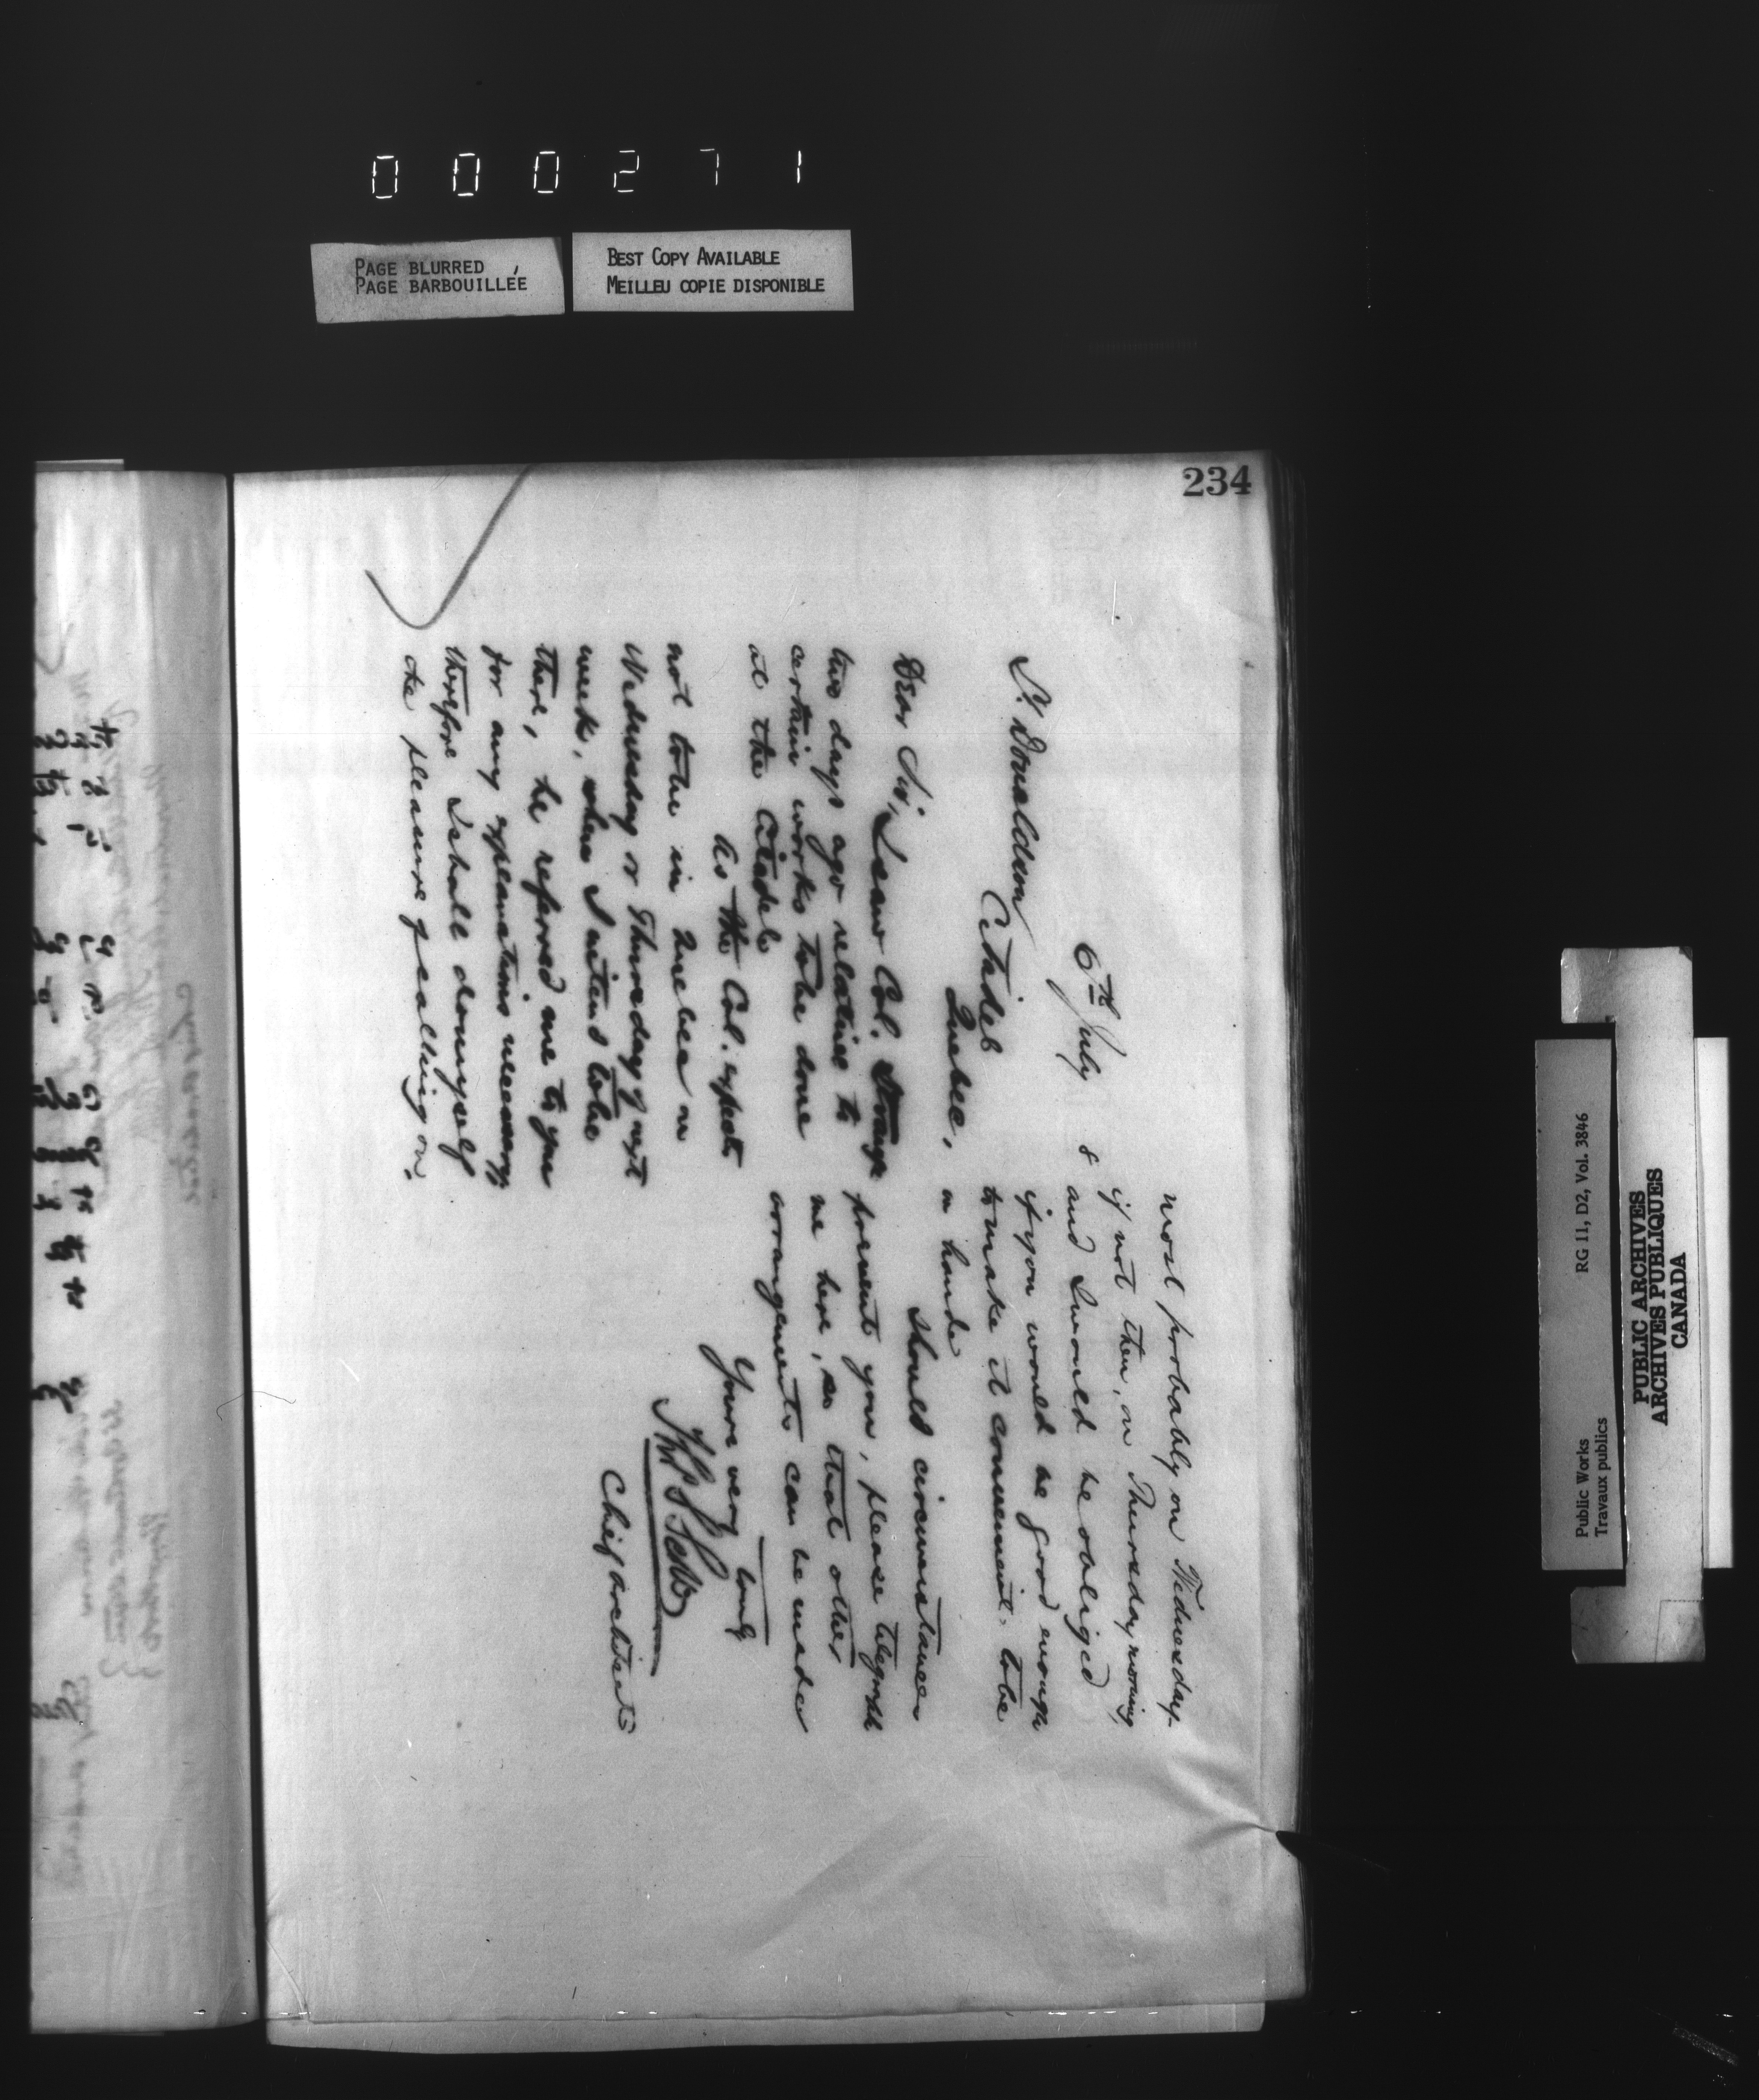 000271
PAGE BLURRED
PAGE BARBOUILLÉE
BEST COPY AVAILABLE
MEILLEU COPIE DISPONIBLE
234
6th July 8
S. Donaldson
Citadel
Quebec,
Dear Sir, I saw Col. Strange
two days ago relative to
certain works to be done
at the Citadel
As the Col. expects
not to be in Quebec on
Wednesday or Thursday of next
week, when I intend to be
there, he referred me to you
for any explanations necessary
therefore I shall do myself
the pleasure of calling on
most probably on Wednesday
if not then, on Thursday
and I would be obliged
if you would be good enough
to make it convenient to be
on hand
Should circumstances
prevent you, please telegraph
me here, so that other
arrangements can be made
Yours very truly
Thos S Scott
Chief architect
Public Works
Travaux publics
RG 11, D2, Vol. 3846
PUBLIC ARCHIVES
ARCHIVES PUBLIQUES
CANADA